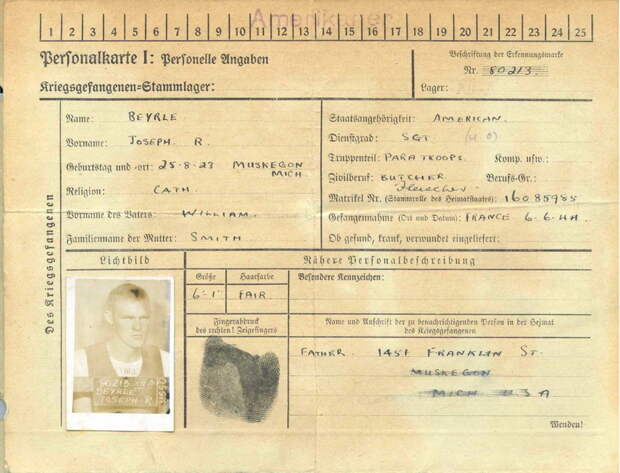 Amerikaner
1 2 3 4 5 6 7 8 9 10 11 12 13 14 15 16 17 18 19 20 21 22 23 24 25
Personalkarte I: Personelle Angaben
Beschriftung der Erkennungsmarke
Nr. 80213
Kriegsgefangenen=Stammlager:
Lager:
Des Kriegsgefangenen
Name: BEYRLE
Staatsangehörigkeit: AMERICAN.
Vorname: JOSEPH R.
Dienstgrad: SGT
Geburtstag und -ort: 25-8-23 MUSKEGON MICH.
Truppenteil: PARATROOPS. Komp. usw.:
Religion: CATH.
Zivilberuf: BUTCHER Berufs-Gr.:
Fleischer
Vorname des Vaters: WILLIAM.
Matrikel Nr. (Stammrolle des Heimatstaates) 16085985
Familienname der Mutter: SMITH.
Gefangennahme (Ort und Datum): FRANCE 6.6.44
Ob gesund, krank, verwundet eingeliefert:
Lichtbild
Nähere Personalbeschreibung
Größe
Haarfarbe
Besondere Kennzeichen:
6-1
FAIR.
Fingerabdruck
des rechten! Zeigefingers
Name und Anschrift der zu benachrichtigenden Person in der Heimat
des Kriegsgefangenen
FATHER. 1451 FRANKLIN ST.
MUSKEGON
MICH USA
BEYRLE
JOSEPH R.
Wenden!